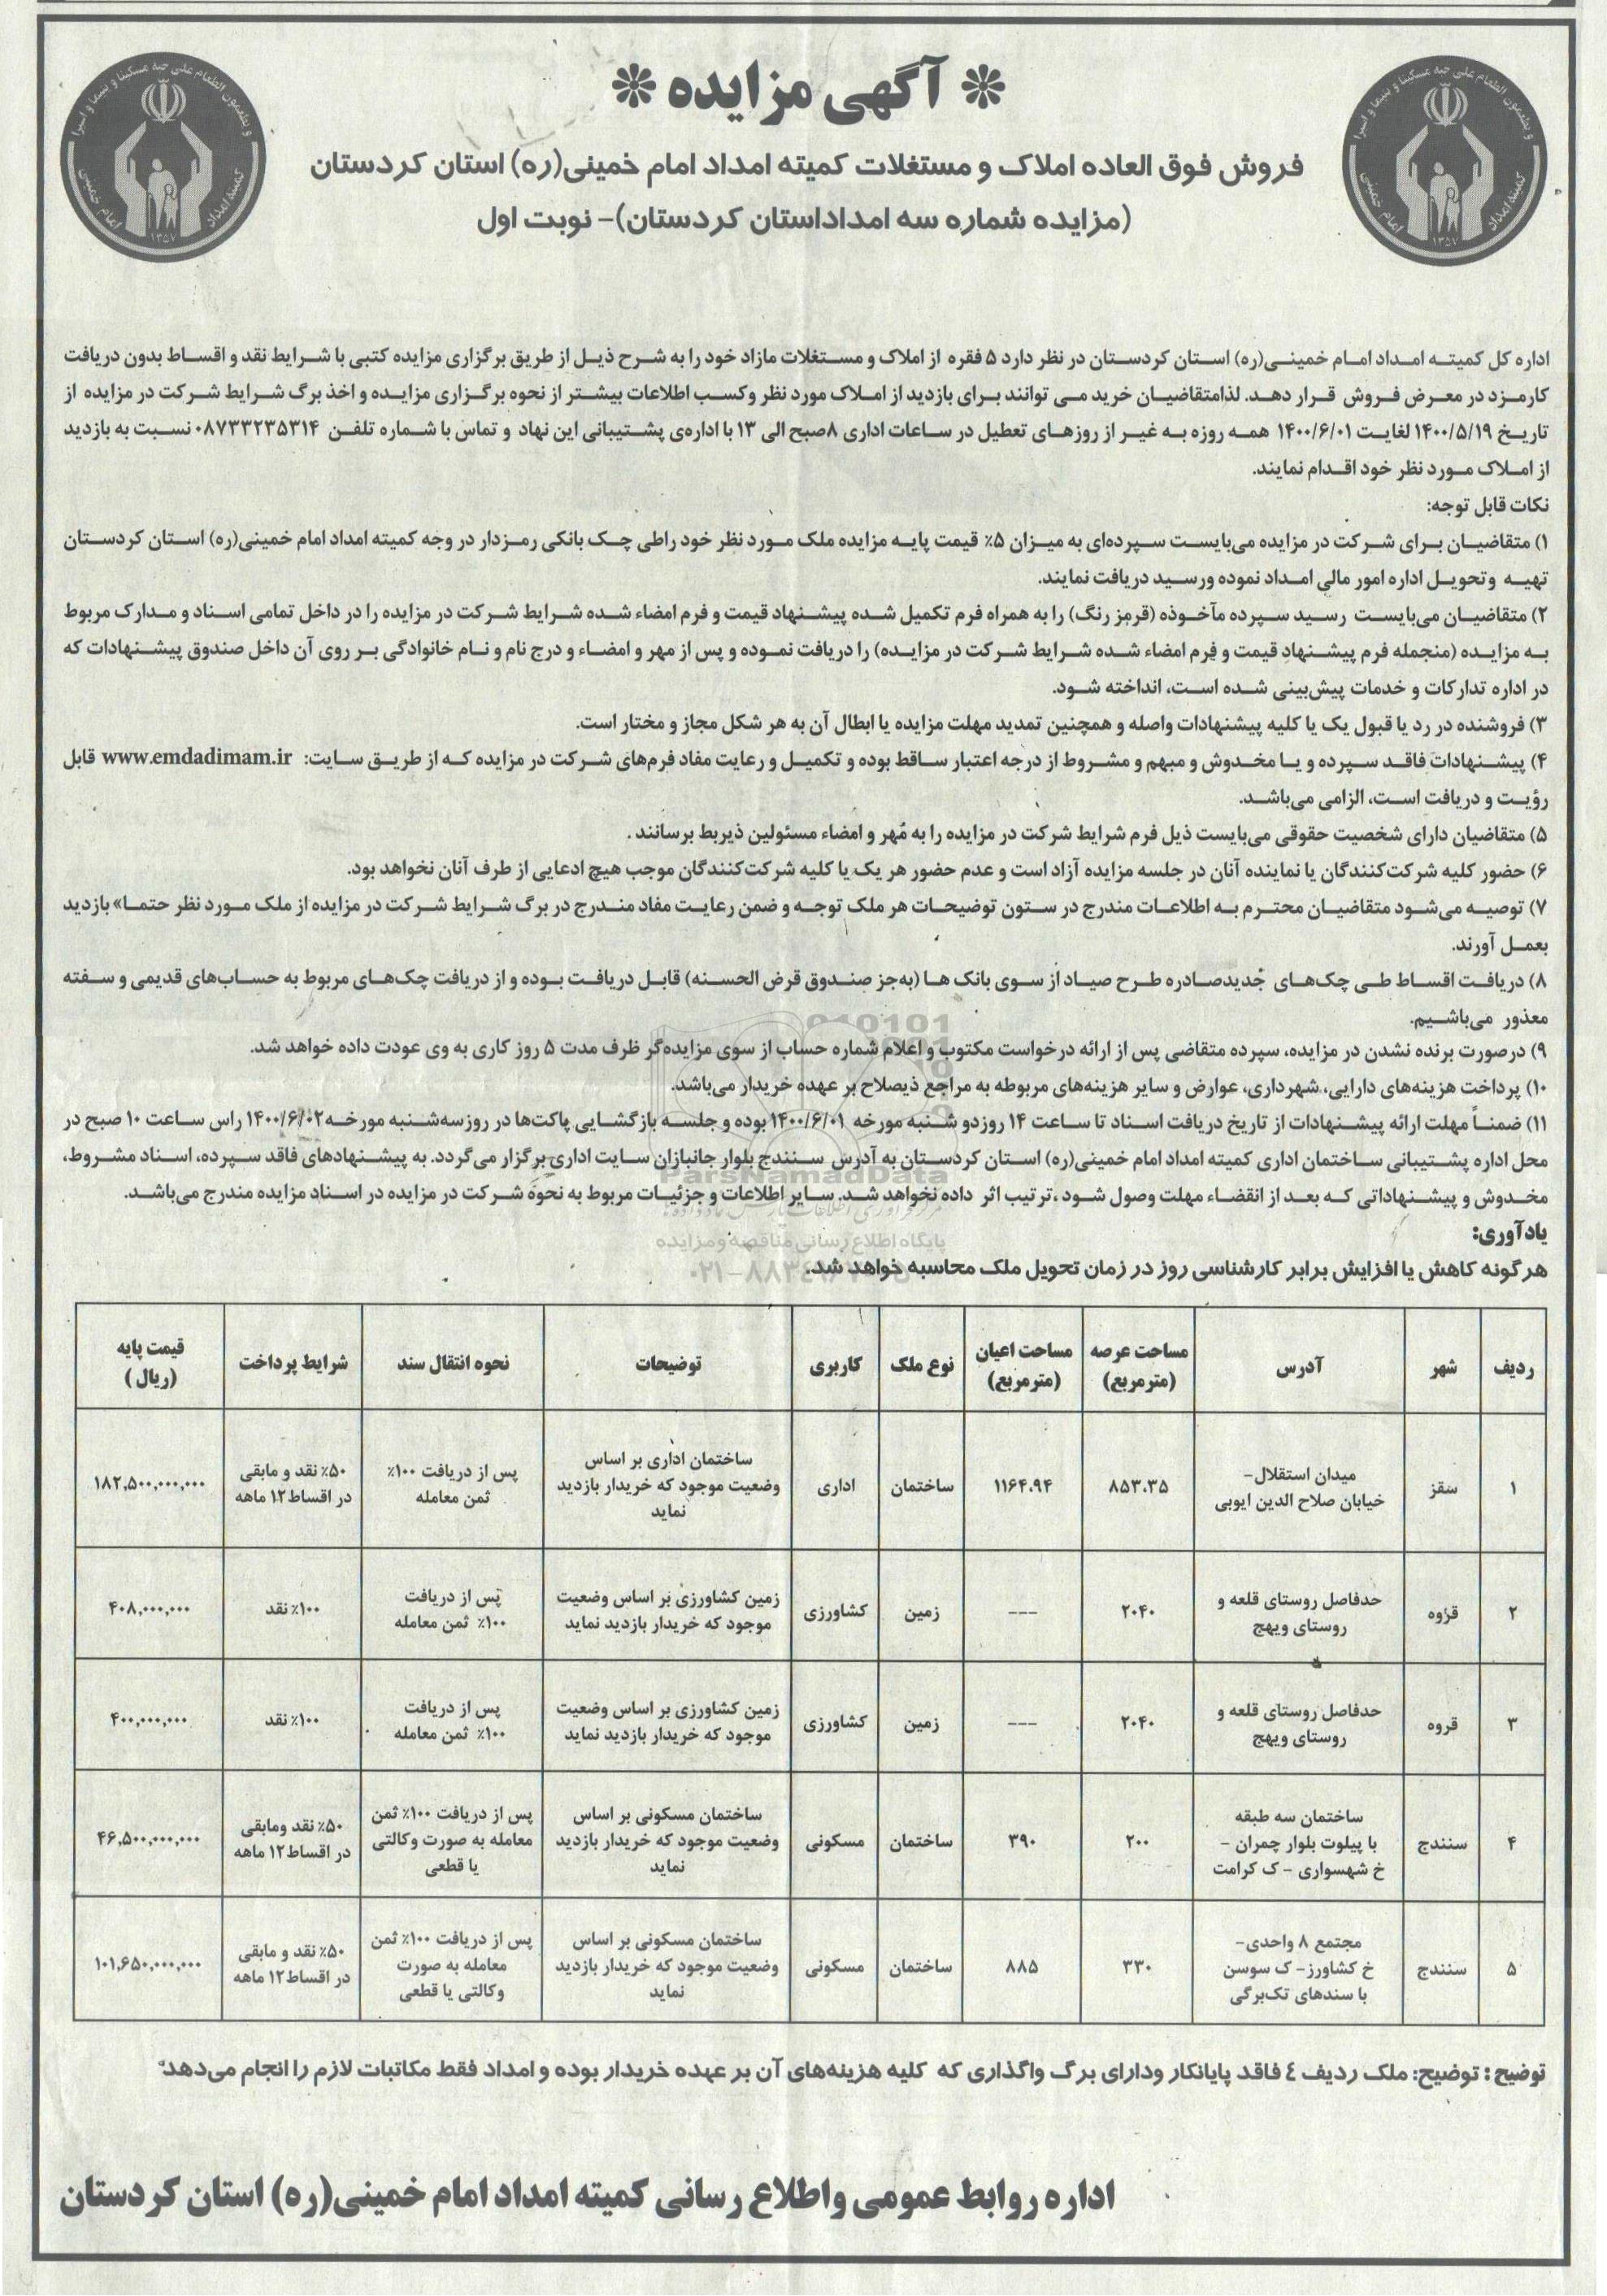 ❊ آگهی مزایده ❊
فروش فوق العاده املاک و مستغلات کمیته امداد امام خمینی(ره) استان کردستان
(مزایده شماره سه امداداستان کردستان)- نوبت اول
اداره کل کمیته امداد امام خمینی(ره) استان کردستان در نظر دارد ۵ فقره از املاک و مستغلات مازاد خود را به شرح ذیل از طریق برگزاری مزایده کتبی با شرایط نقد و اقساط بدون دریافت
کارمزد در معرض فروش قرار دهد. لذامتقاضیان خرید می توانند برای بازدید از املاک مورد نظر وکسب اطلاعات بیشتر از نحوه برگزاری مزایده و اخذ برگ شرایط شرکت در مزایده از
تاریخ ۱۴۰۰/۵/۱۹ لغایت ۱۴۰۰/۶/۰۱ همه روزه به غیر از روزهای تعطیل در ساعات اداری ۸صبح الی ۱۳ با اداره‌ی پشتیبانی این نهاد و تماس با شماره تلفن ۰۸۷۳۳۲۳۵۳۱۴ نسبت به بازدید
از املاک مورد نظر خود اقدام نمایند.
نکات قابل توجه:
۱) متقاضیان برای شرکت در مزایده می‌بایست سپرده‌ای به میزان ۵٪ قیمت پایه مزایده ملک مورد نظر خود راطی چک بانکی رمزدار در وجه کمیته امداد امام خمینی(ره) استان کردستان
تهیه وتحویل اداره امور مالی امداد نموده ورسید دریافت نمایند.
۲) متقاضیان می‌بایست رسید سپرده مأخوذه (قرمز رنگ) را به همراه فرم تکمیل شده پیشنهاد قیمت و فرم امضاء شده شرایط شرکت در مزایده را در داخل تمامی اسناد و مدارک مربوط
به مزایده (منجمله فرم پیشنهاد قیمت و فرم امضاء شده شرایط شرکت در مزایده) را دریافت نموده و پس از مهر و امضاء و درج نام و نام خانوادگی بر روی آن داخل صندوق پیشنهادات که
در اداره تدارکات و خدمات پیش‌بینی شده است، انداخته شود.
۳) فروشنده در رد یا قبول یک یا کلیه پیشنهادات واصله و همچنین تمدید مهلت مزایده یا ابطال آن به هر شکل مجاز و مختار است.
۴) پیشنهادات فاقد سپرده و یا مخدوش و مبهم و مشروط از درجه اعتبار ساقط بوده و تکمیل و رعایت مفاد فرم‌های شرکت در مزایده که از طریق سایت: www.emdadimam.ir قابل
رؤیت و دریافت است، الزامی می‌باشد.
۵) متقاضیان دارای شخصیت حقوقی می‌بایست ذیل فرم شرایط شرکت در مزایده را به مُهر و امضاء مسئولین ذیربط برسانند .
۶) حضور کلیه شرکت‌کنندگان یا نماینده آنان در جلسه مزایده آزاد است و عدم حضور هر یک یا کلیه شرکت‌کنندگان موجب هیچ ادعایی از طرف آنان نخواهد بود.
۷) توصیه می‌شود متقاضیان محترم به اطلاعات مندرج در ستون توضیحات هر ملک توجه و ضمن رعایت مفاد مندرج در برگ شرایط شرکت در مزایده از ملک مورد نظر حتما» بازدید
بعمل آورند.
۸) دریافت اقساط طی چک‌های جدیدصادره طرح صیاد از سوی بانک ها (به‌جز صندوق قرض الحسنه) قابل دریافت بوده و از دریافت چک‌های مربوط به حساب‌های قدیمی و سفته
معذور می‌باشیم.
۹) درصورت برنده نشدن در مزایده، سپرده متقاضی پس از ارائه درخواست مکتوب و اعلام شماره حساب از سوی مزایده‌گر ظرف مدت ۵ روز کاری به وی عودت داده خواهد شد.
۱۰) پرداخت هزینه‌های دارایی، شهرداری، عوارض و سایر هزینه‌های مربوطه به مراجع ذیصلاح بر عهده خریدار می‌باشد.
۱۱) ضمناً مهلت ارائه پیشنهادات از تاریخ دریافت اسناد تا ساعت ۱۴ روزدو شنبه مورخه ۱۴۰۰/۶/۰۱ بوده و جلسه بازگشایی پاکت‌ها در روزسه‌شنبه مورخه۱۴۰۰/۶/۰۲ راس ساعت ۱۰ صبح در
محل اداره پشتیبانی ساختمان اداری کمیته امداد امام خمینی(ره) استان کردستان به آدرس سنندج بلوار جانبازان سایت اداری برگزار می‌گردد. به پیشنهادهای فاقد سپرده، اسناد مشروط،
مخدوش و پیشنهاداتی که بعد از انقضاء مهلت وصول شود ،ترتیب اثر داده نخواهد شد. سایر اطلاعات و جزئیات مربوط به نحوه شرکت در مزایده در اسناد مزایده مندرج می‌باشد.
یادآوری:
هرگونه کاهش یا افزایش برابر کارشناسی روز در زمان تحویل ملک محاسبه خواهد شد.
ردیف شهر آدرس مساحت عرصه (مترمربع) مساحت اعیان (مترمربع) نوع ملک کاربری توضیحات نحوه انتقال سند شرایط پرداخت قیمت پایه (ریال)
۱ سقز میدان استقلال- خیابان صلاح الدین ایوبی ۸۵۳.۳۵ ۱۱۶۴.۹۴ ساختمان اداری ساختمان اداری بر اساس وضعیت موجود که خریدار بازدید نماید پس از دریافت ۱۰۰٪ ثمن معامله ۵۰٪ نقد و مابقی در اقساط۱۲ ماهه ۱۸۲,۵۰۰,۰۰۰,۰۰۰
۲ قروه حدفاصل روستای قلعه و روستای ویهج ۲۰۴۰ --- زمین کشاورزی زمین کشاورزی بر اساس وضعیت موجود که خریدار بازدید نماید پس از دریافت ۱۰۰٪ ثمن معامله ۱۰۰٪ نقد ۴۰۸,۰۰۰,۰۰۰
۳ قروه حدفاصل روستای قلعه و روستای ویهج ۲۰۴۰ --- زمین کشاورزی زمین کشاورزی بر اساس وضعیت موجود که خریدار بازدید نماید پس از دریافت ۱۰۰٪ ثمن معامله ۱۰۰٪ نقد ۴۰۰,۰۰۰,۰۰۰
۴ سنندج ساختمان سه طبقه با پیلوت بلوار چمران - خ شهسواری - ک کرامت ۲۰۰ ۳۹۰ ساختمان مسکونی ساختمان مسکونی بر اساس وضعیت موجود که خریدار بازدید نماید پس از دریافت ۱۰۰٪ ثمن معامله به صورت وکالتی یا قطعی ۵۰٪ نقد ومابقی در اقساط۱۲ ماهه ۴۶,۵۰۰,۰۰۰,۰۰۰
۵ سنندج مجتمع ۸ واحدی- خ کشاورز- ک سوسن با سندهای تک‌برگی ۳۳۰ ۸۸۵ ساختمان مسکونی ساختمان مسکونی بر اساس وضعیت موجود که خریدار بازدید نماید پس از دریافت ۱۰۰٪ ثمن معامله به صورت وکالتی یا قطعی ۵۰٪ نقد و مابقی در اقساط۱۲ ماهه ۱۰۱,۶۵۰,۰۰۰,۰۰۰
توضیح : توضیح: ملک ردیف ٤ فاقد پایانکار ودارای برگ واگذاری که کلیه هزینه‌های آن بر عهده خریدار بوده و امداد فقط مکاتبات لازم را انجام می‌دهد
اداره روابط عمومی و اطلاع رسانی کمیته امداد امام خمینی(ره) استان کردستان
کمیته امداد امام خمینی
۱۳۵۷
ParsNamadData
پایگاه اطلاع رسانی مناقصه و مزایده